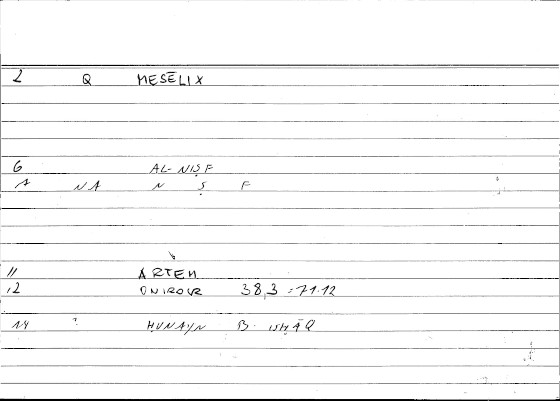 2 Q MESĒLIX
6 AL-NIṢF
1 NA N Ṣ F
11 ARTEM
12 ONIROCR 38,3 = 71.12
14 ? ḤUNAYN B. ISḤĀQ